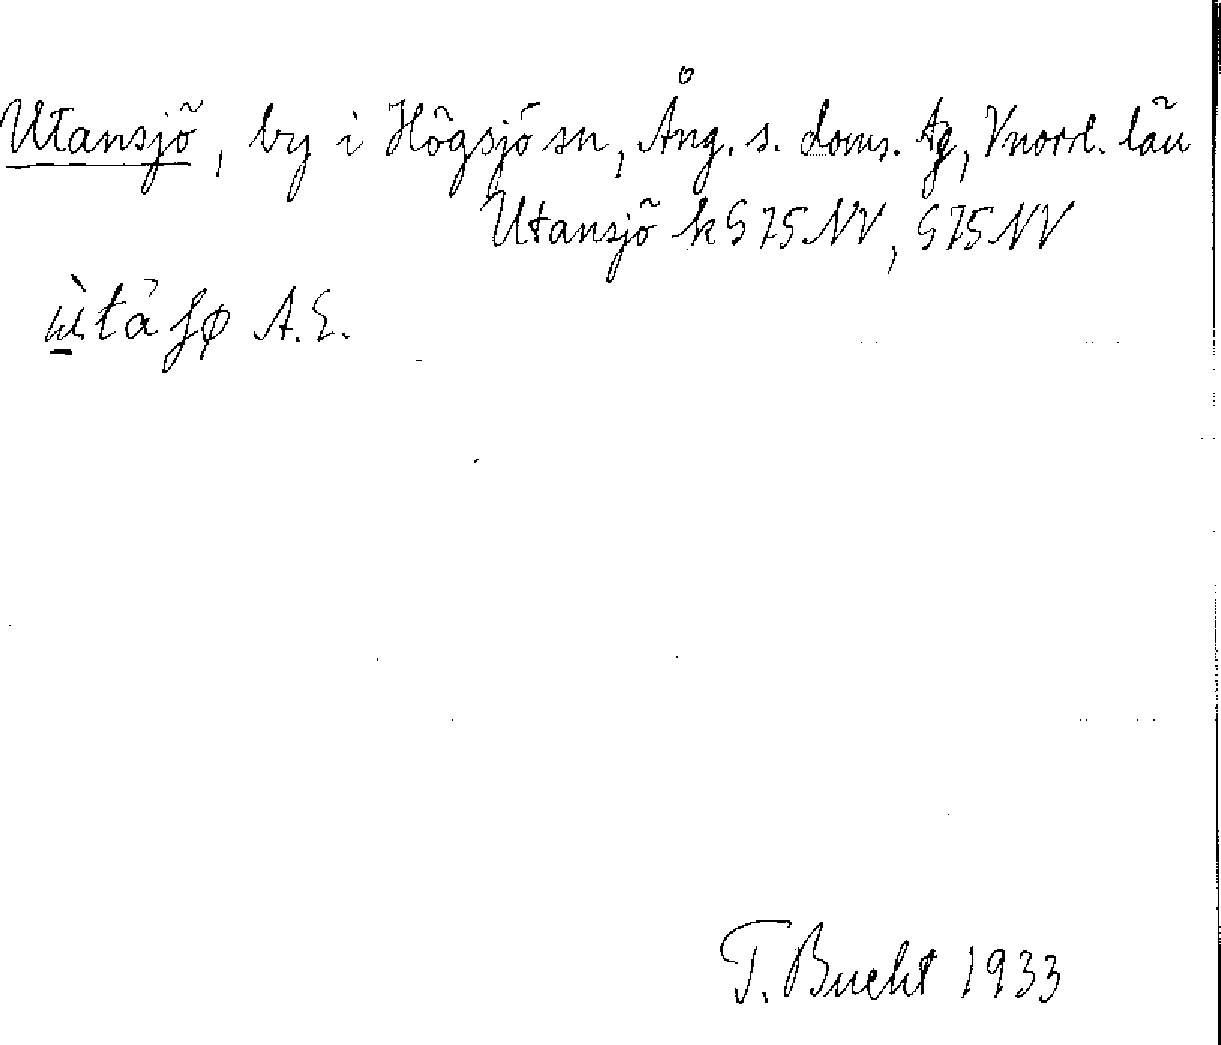 Utansjö, by i Högsjö sn, Ång. s. doms. tg, Vnorrl. län
Utansjö k G 75 NV, G 75 NV
A. E.
T. Bucht 1933